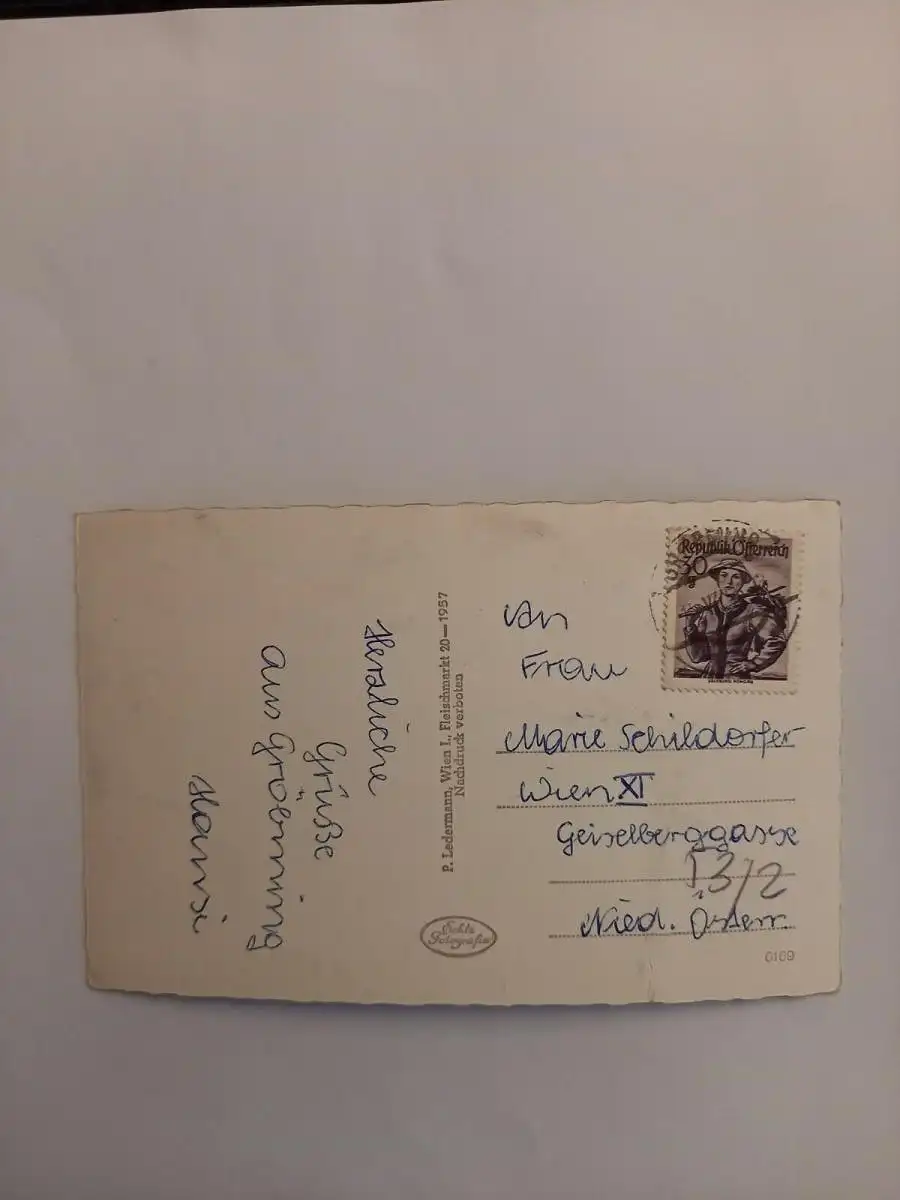 Herzliche
Grüße
aus Gröbming
Hansi
P. Ledermann, Wien I., Fleischmarkt 20—1957
Nachdruck verboten
Echte
Fotografie
Republik Österreich
30
g
An
Frau
Marie Schildorfer
Wien XI
Geiselberggasse
13/2
Nied. Österr.
0169